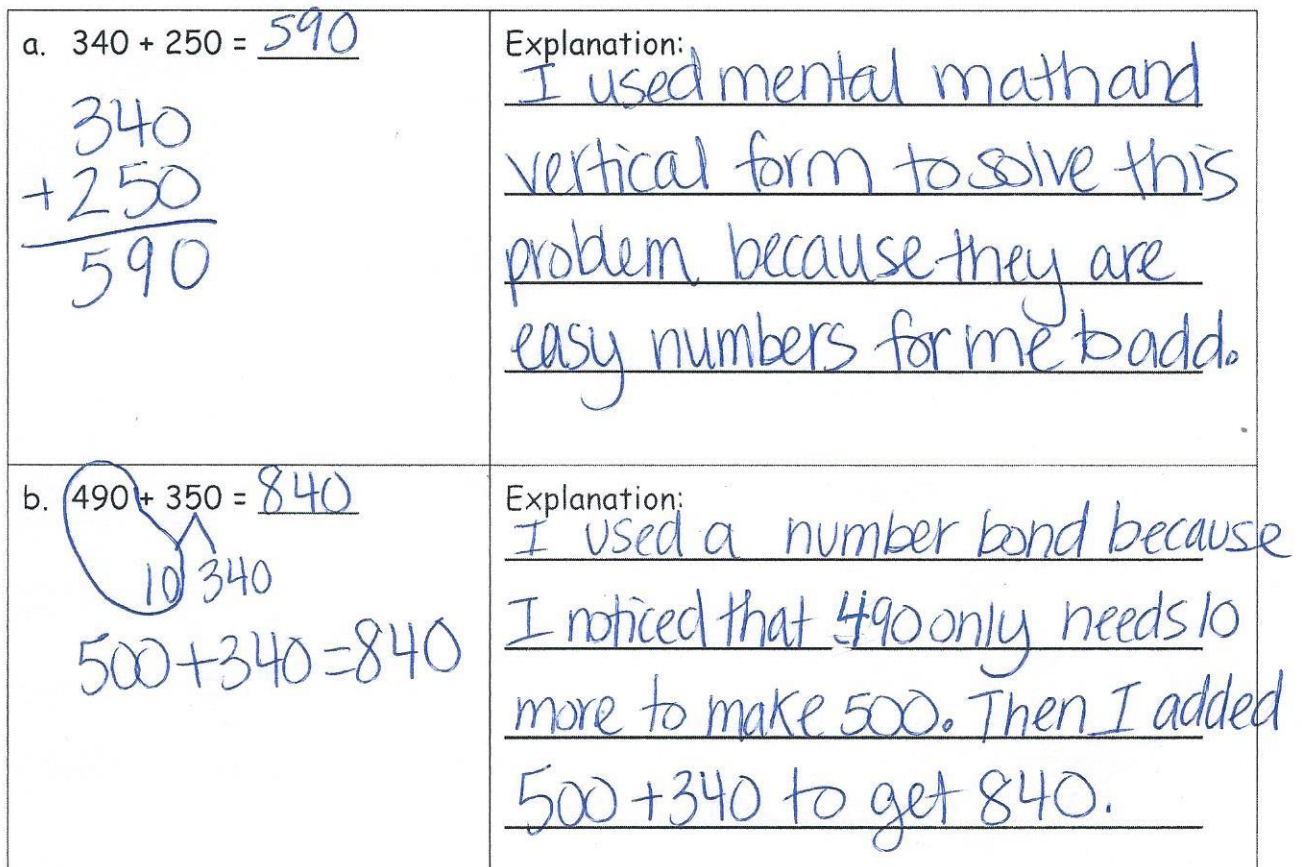 a. 340 + 250 = 590
340
+250
590
Explanation:
I used mental math and
vertical form to solve this
problem because they are
easy numbers for me to add.
b. 490 + 350 = 840
10 340
500+340=840
Explanation:
I used a number bond because
I noticed that 490 only needs 10
more to make 500. Then I added
500+340 to get 840.